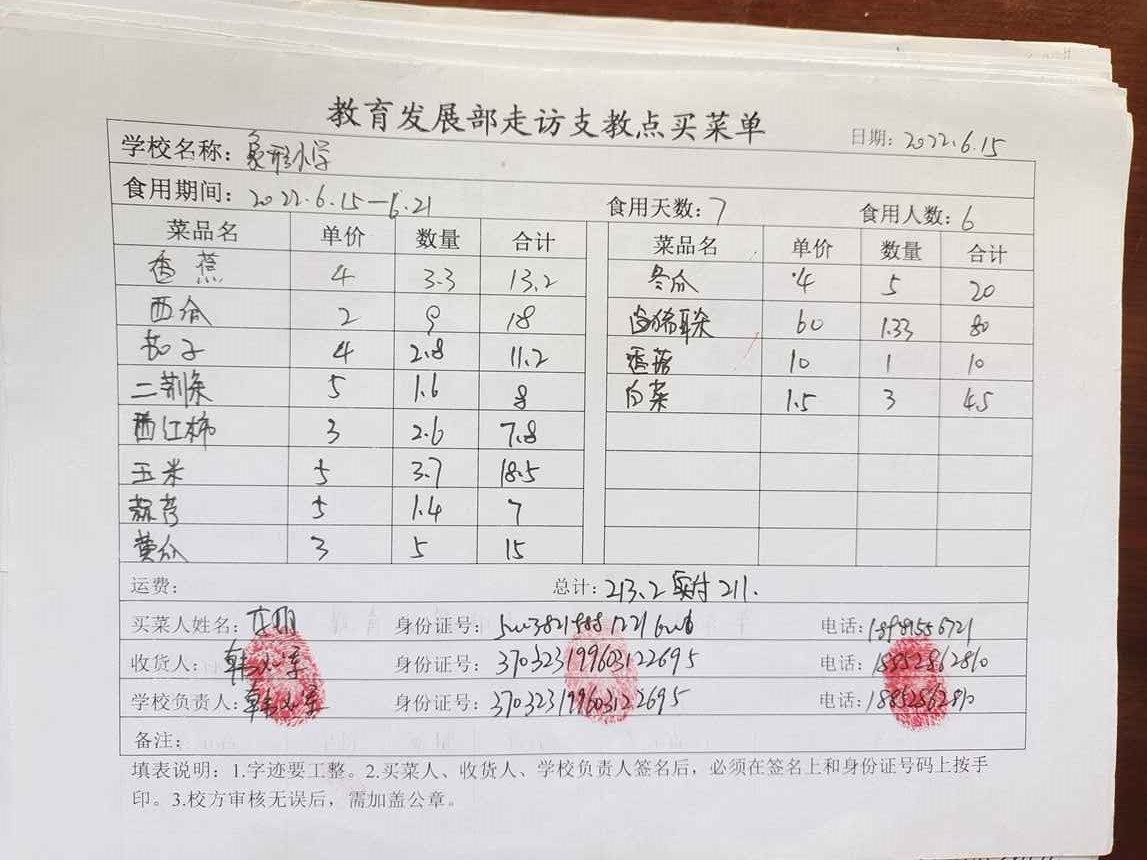 教育发展部走访支教点买菜单
日期: 2022.6.15
学校名称: 象形小学
食用期间: 2022.6.15—6.21 食用天数: 7 食用人数: 6
菜品名 单价 数量 合计 菜品名 单价 数量 合计
香蕉 4 3.3 13.2 冬瓜 4 5 20
西瓜 2 9 18 60 1.33 80
茄子 4 2.8 11.2 香菇 10 1 10
二荆条 5 1.6 8 白菜 1.5 3 4.5
西红柿 3 2.6 7.8
玉米 5 3.7 18.5
5 1.4 7
黄瓜 3 5 15
运费: 总计: 213.2 实付 211.
买菜人姓名: 身份证号: 电话:
收货人: 韩 身份证号: 370323199603122695 电话: 18852862810
学校负责人: 韩 身份证号: 370323199603122695 电话: 18852862810
备注:
填表说明：1.字迹要工整。2.买菜人、收货人、学校负责人签名后，必须在签名上和身份证号码上按手
印。3.校方审核无误后，需加盖公章。